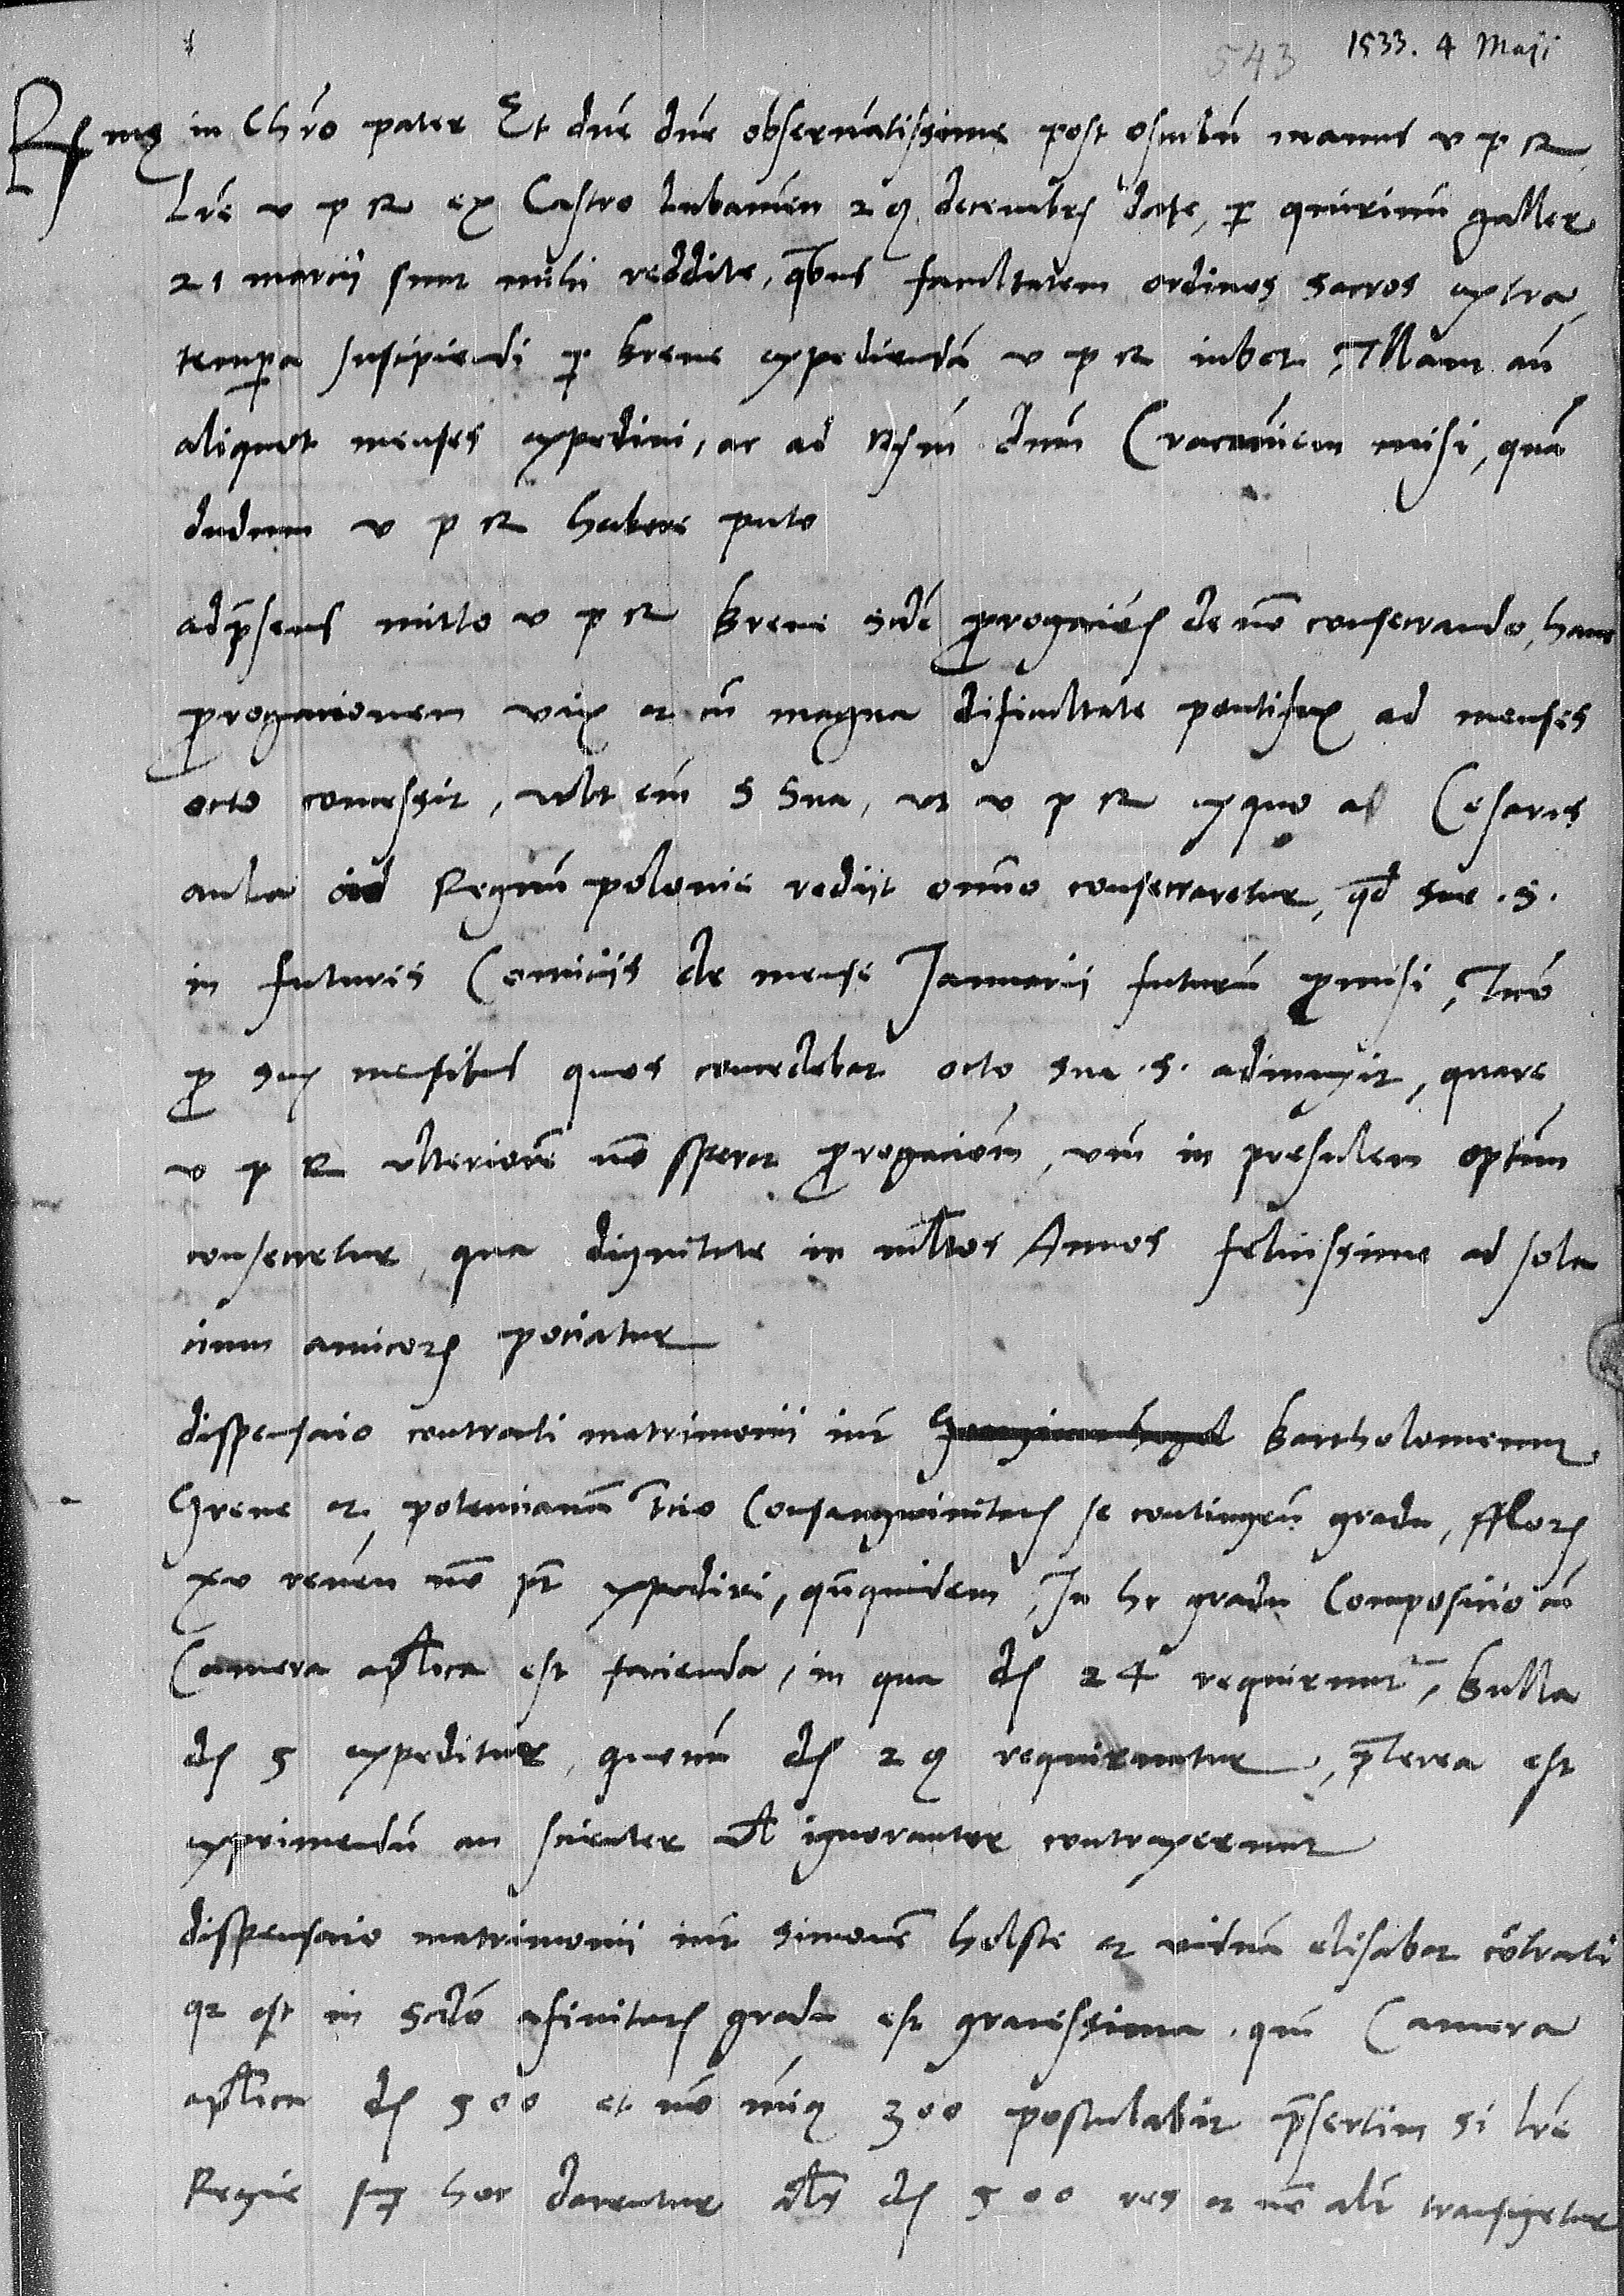 543 1533. 4 Maji
Rssme in Chro pater Et dne dne observatissime post osculu manus v p R
Lre v p R ex Castro lubavien 29 decembris date, p quirinu galler
21 marcij sunt mihi reddite, qbus facultatem ordines sacros extra
tempora suscipiendi p breve expedienda v p R iubet, Illam an
aliquot menses expedivi, ac ad Rssm dnm Cracovien misi, qua
dudum v p R habere puto
ad psens mitto v p R breve scde progacois de no consecrando, hanc
progacionem vix et cu magna dificultate pontifex ad menses
octo concessit, vult em S Sua, ut v p R ex quo a Cesaris
aula ad Regnu polonie rediit omno consecraretur, qd sue .S.
in futuris Comiciis de mense Januarii futuru pmisi, Ideo
p sex mensibus quos concedebat octo sua .S. adiunxit, quare
v p R ulteriore no speret progaciom, vm in presulem optm
consecretur, qua dignitate in multos Annos felicissime ad sola
cium amicor pociatur
dispensacio contracti matrimonii int Bartholomeum
Grene et potencianam tcio Consangwinitatis se contingen gradu, fflor
xv renen no pt expediri, qnquidem, In hc gradu Composicio cu
Camera aplica est facienda, in qua d 24 requirunt, bulla
d 5 expeditur, quonm d 29 requirantur, pterea est
exprimendu an scienter vl ignoranter contraxerunt
dispensacio matrimonii int Simone holste et vidua elisabet cotracti
qt est in scdo afinitatis gradu est gravissima. qm Camera
aplica d 500 et no miq 300 postulabit psertim si lre
Regie sup hoc darentur als d 500 res et no alr transigetur